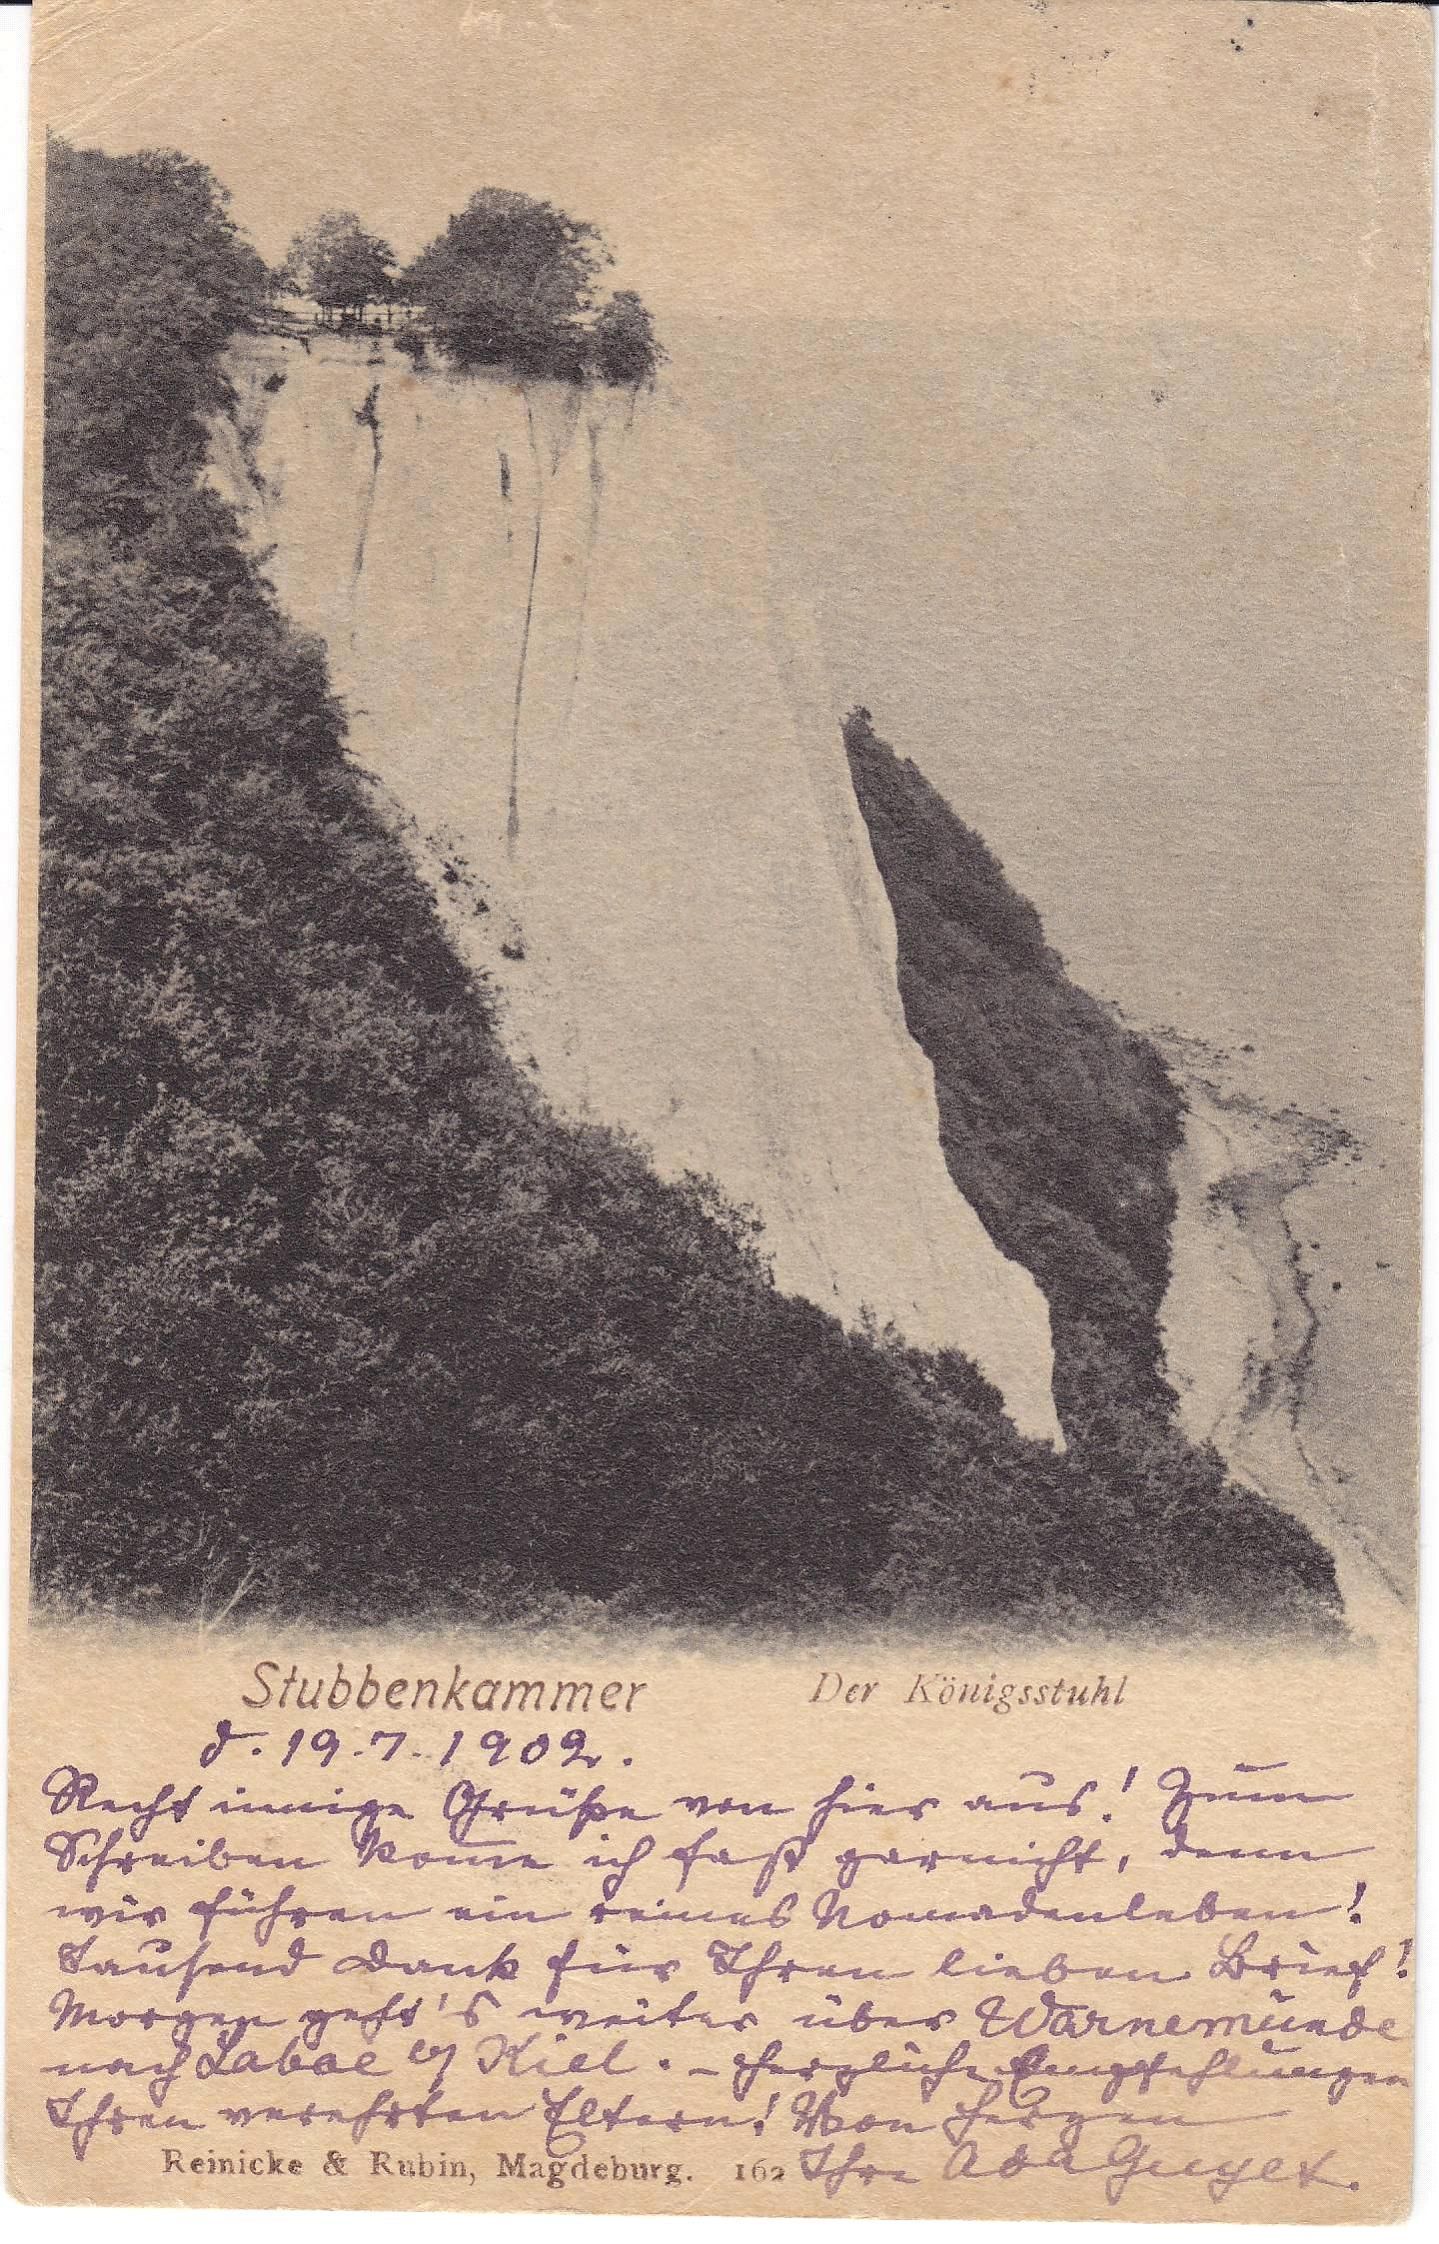 Stubbenkammer Der Königsstuhl
d. 19.7.1902.
Recht innige Grüße von hier aus! Zum
Schreiben kom̅e ich fast garnicht, denn
wir führen ein reines Nomadenleben!
Tausend Dank für Ihren lieben Brief!
Morgen geht's weiter über Warnemünde
nach Laboe b/ Kiel. – Herzliche Empfehlungen
Ihren verehrten Eltern! Von Herzen
Reinicke & Rubin, Magdeburg. 162 Ihre Ada